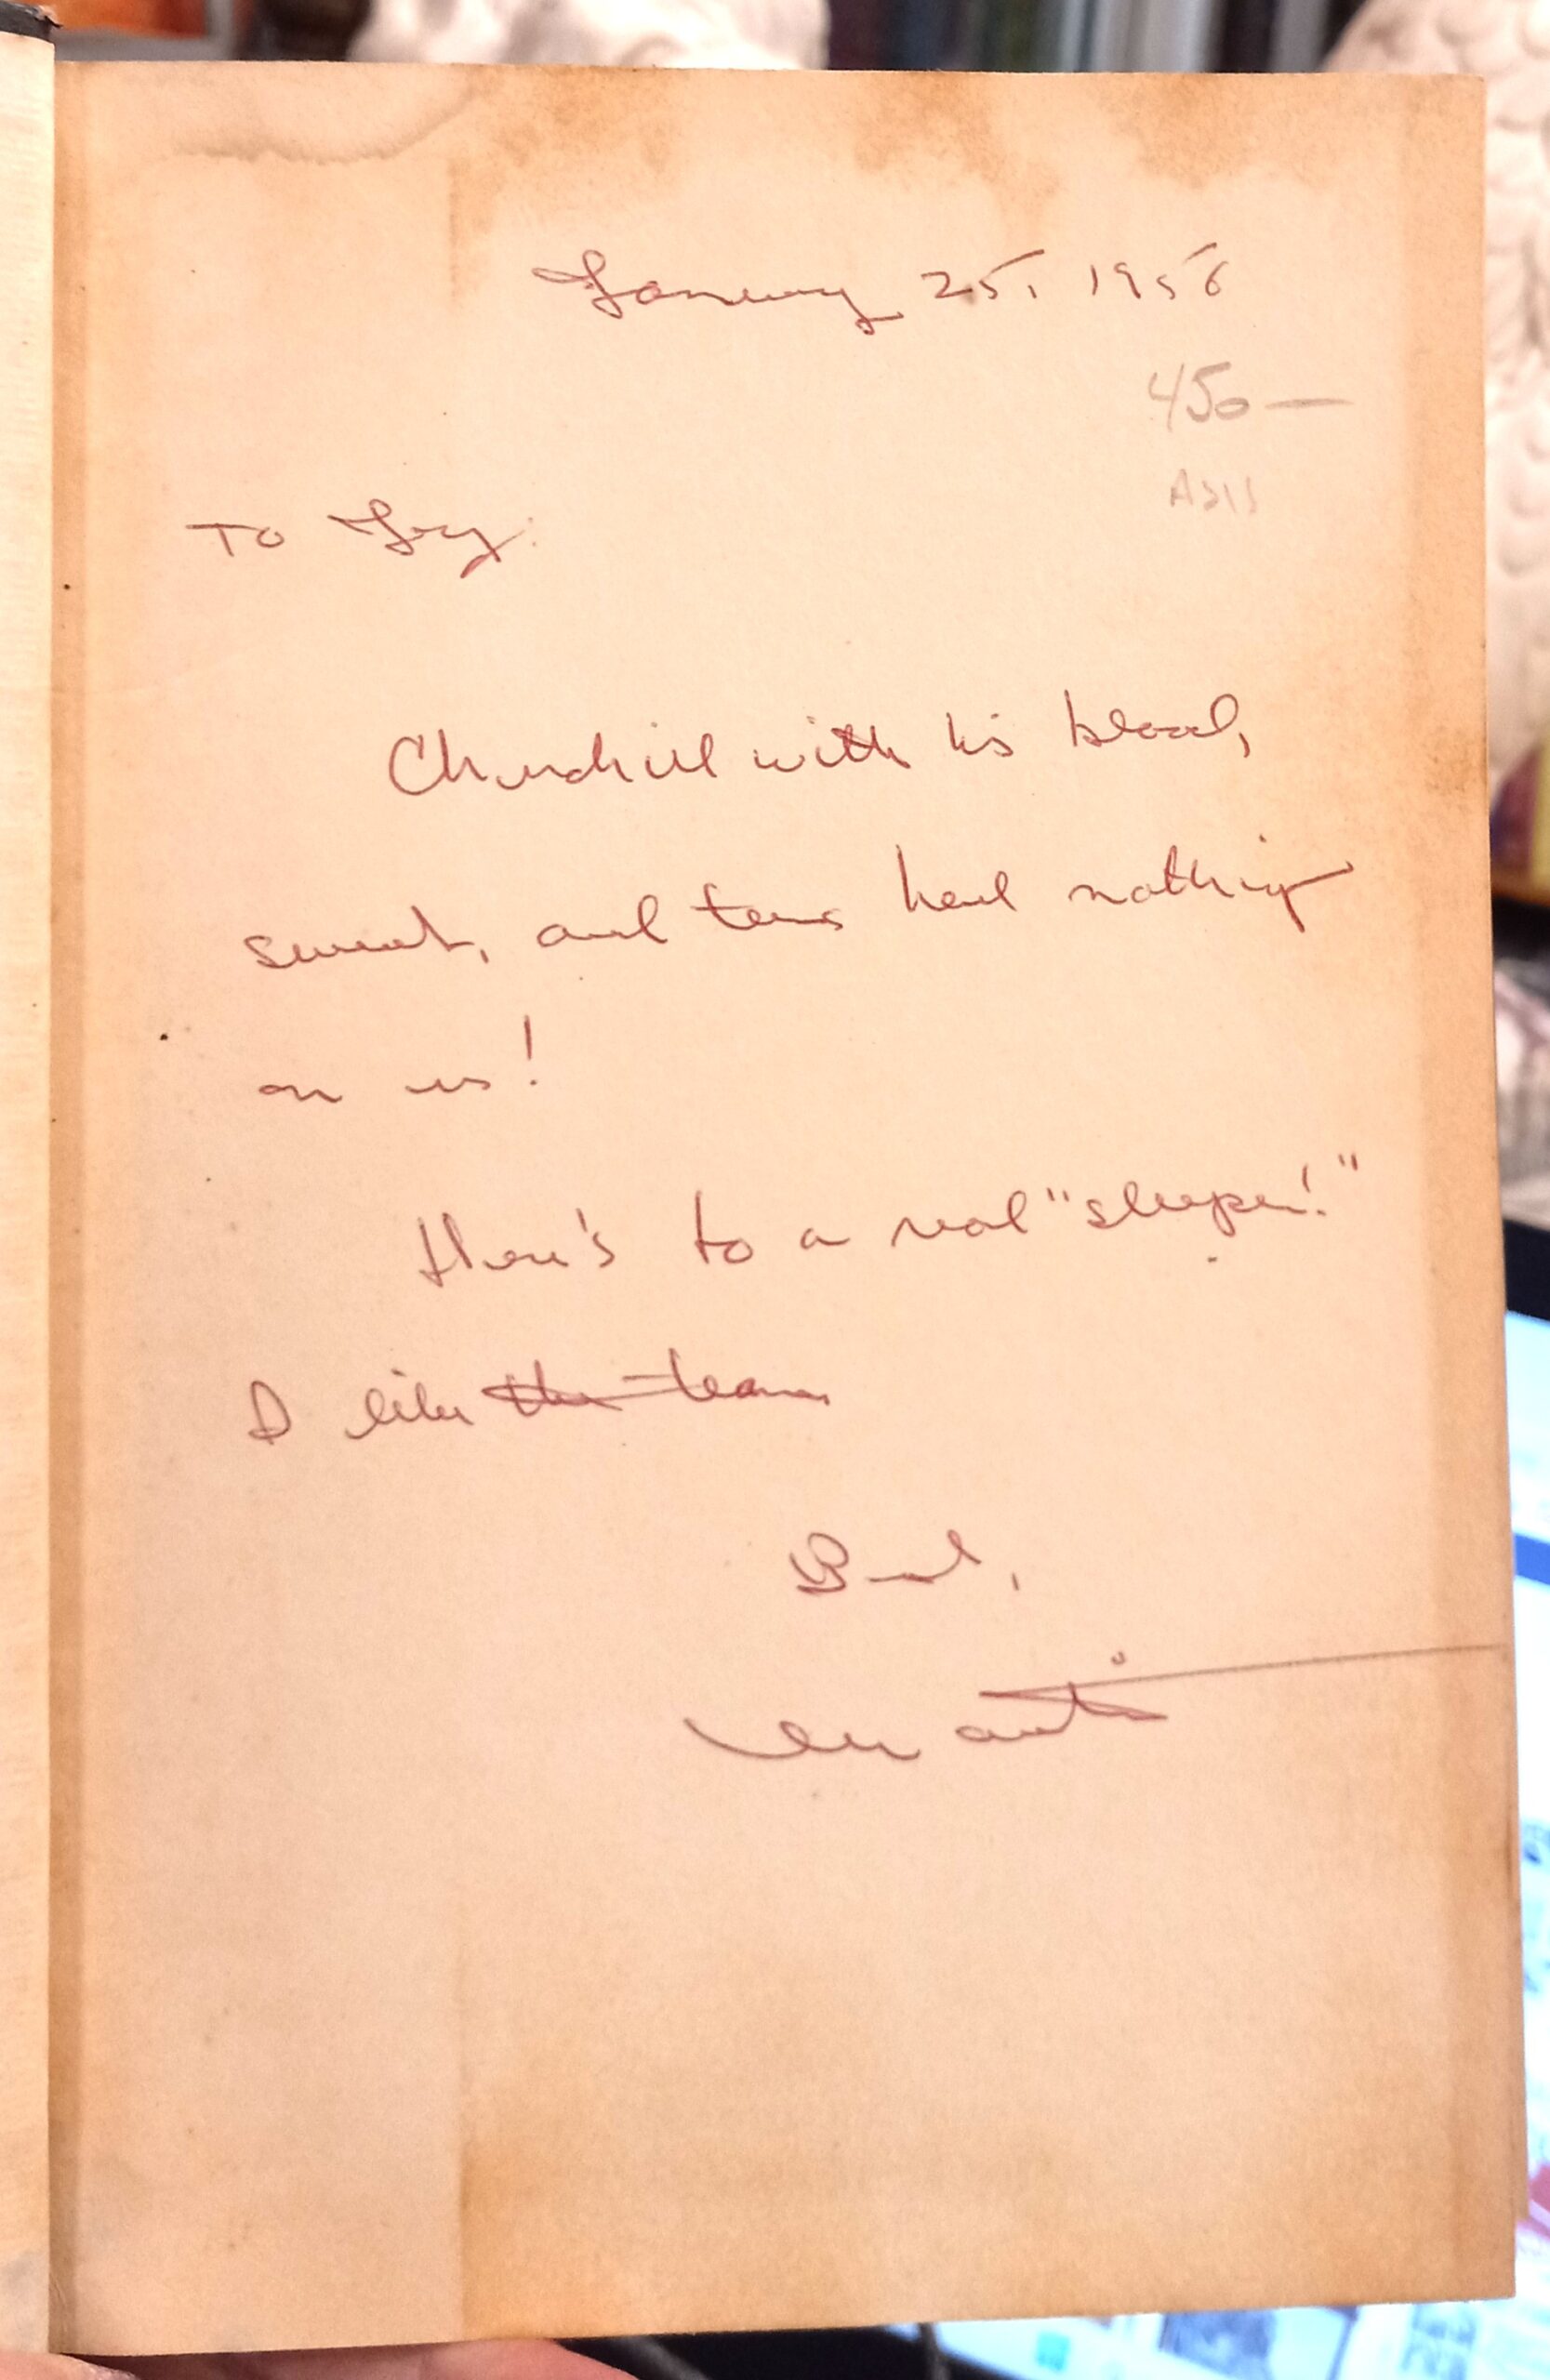 January 25, 1956
450—
AS IS
To Joy:
Churchill with his blood,
sweat, and tears had nothing
on us!
Here's to a real "sleeper!"
I like the team
Best,
Martin